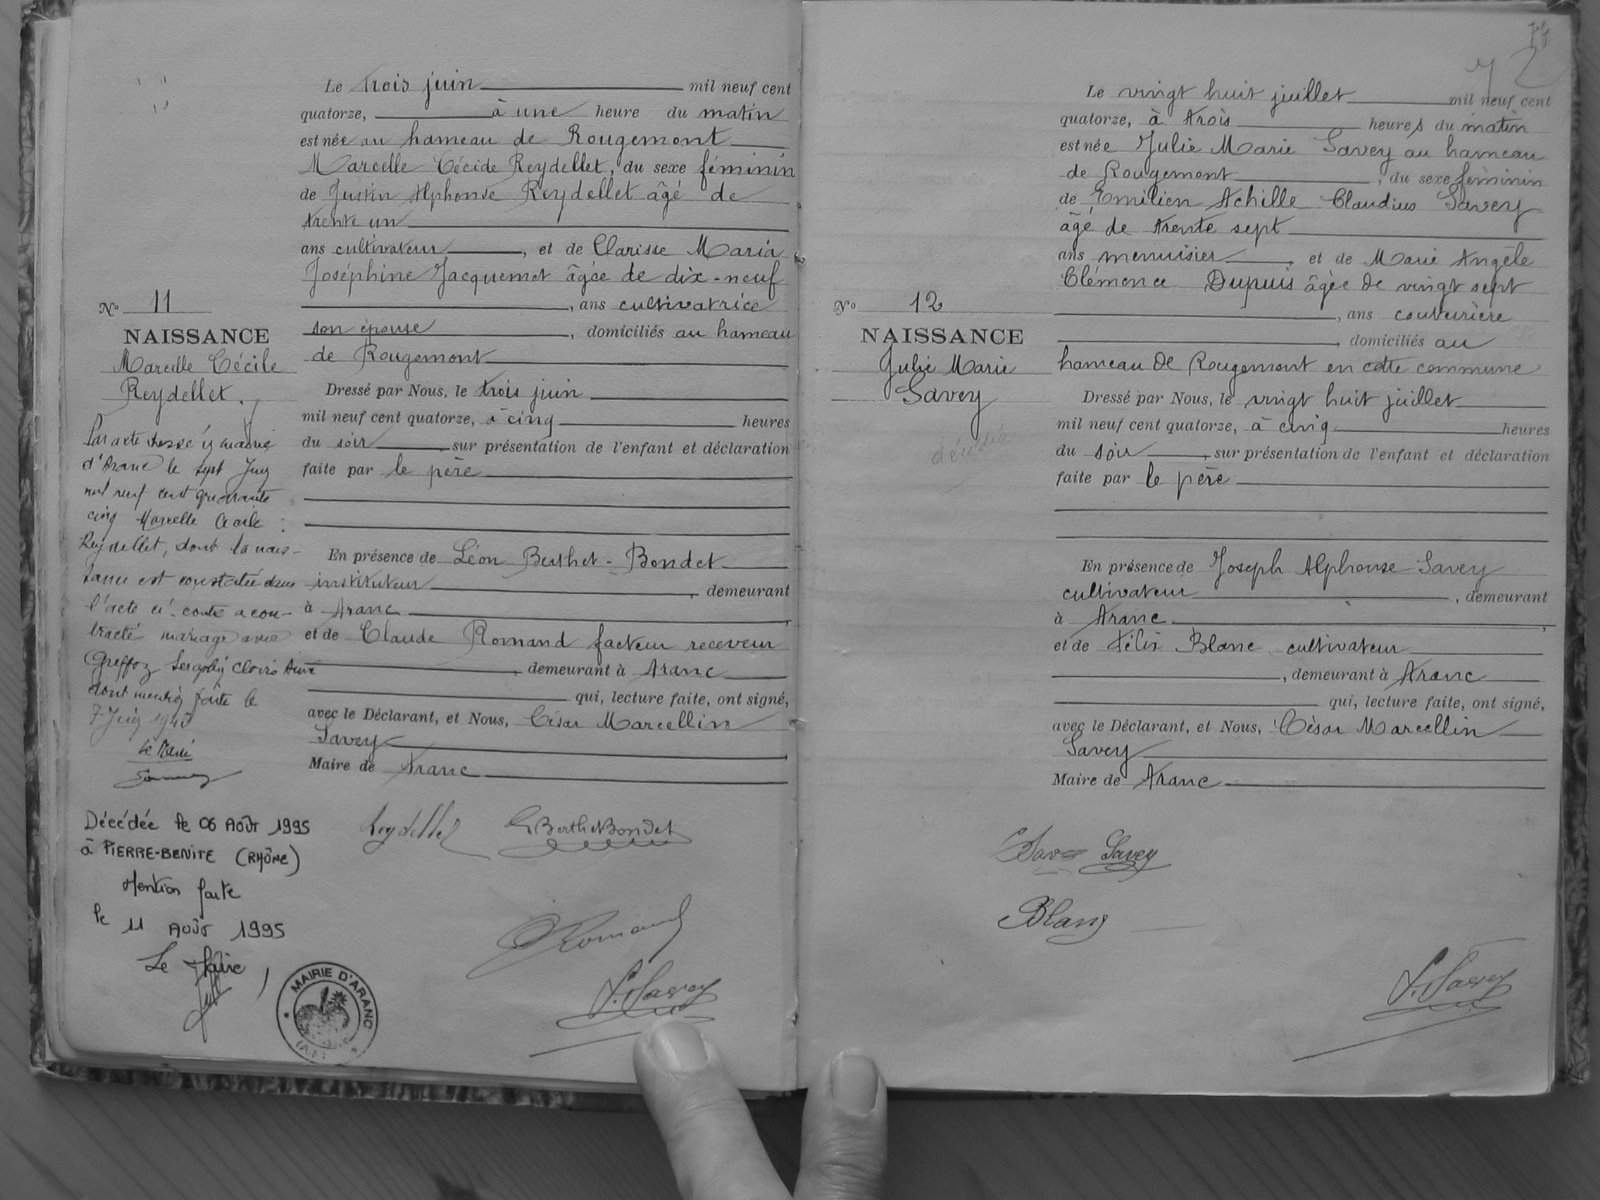 Le trois juin mil neuf cent
quatorze, à une heure du matin
est née au hameau de Rougemont
Marcelle Cécile Reydellet, du sexe féminin
de Justin Alphonse Reydellet âgé de
trente un
ans cultivateur, et de Clarisse Maria
Joséphine Jacquemet âgée de dix-neuf
, ans cultivatrice
son épouse, domiciliés au hameau
de Rougemont
Dressé par Nous, le trois juin
mil neuf cent quatorze, à cinq heures
du soir, sur présentation de l'enfant et déclaration
faite par le père
En présence de Léon Berthet-Bondet
instituteur, demeurant
à Aranc,
et de Claude Romand facteur receveur
, demeurant à Aranc
qui, lecture faite, ont signé,
avec le Déclarant, et Nous, César Marcellin
Savey
Maire de Aranc
Reydellet
BerthetBondet
Romand
Savey
No 11
NAISSANCE
Marcelle Cécile
Reydellet.
Par acte dressé en mairie
d'Aranc le sept Juin
mil neuf cent quarante
cinq Marcelle Cécile
Reydellet, dont la nais-
sance est constatée dans
l'acte ci-contre a con-
tracté mariage avec
Greffoz
dont mention faite le
7 Juin 1945
Le Maire
Décédée le 06 Août 1995
à PIERRE-BENITE (RHÔNE)
Mention faite
le 11 Août 1995
Le Maire
MAIRIE D'ARANC
(AIN)
72
Le vingt huit juillet mil neuf cent
quatorze, à trois heures du matin
est née Julie Marie Savey au hameau
de Rougemont, du sexe féminin
de Emilien Achille Claudius Savey
âgé de trente sept
ans menuisier, et de Marie Angèle
Clémence Dupuis âgée de vingt sept
, ans couturière
, domiciliés au
hameau de Rougemont en cette commune
Dressé par Nous, le vingt huit juillet
mil neuf cent quatorze, à cinq heures
du soir, sur présentation de l'enfant et déclaration
faite par le père
En présence de Joseph Alphonse Savey
cultivateur, demeurant
à Aranc,
et de Félix Blanc cultivateur
, demeurant à Aranc
qui, lecture faite, ont signé,
avec le Déclarant, et Nous, César Marcellin
Savey
Maire de Aranc
Savey
Blanc
Savey
No 12
NAISSANCE
Julie Marie
Savey
décédée